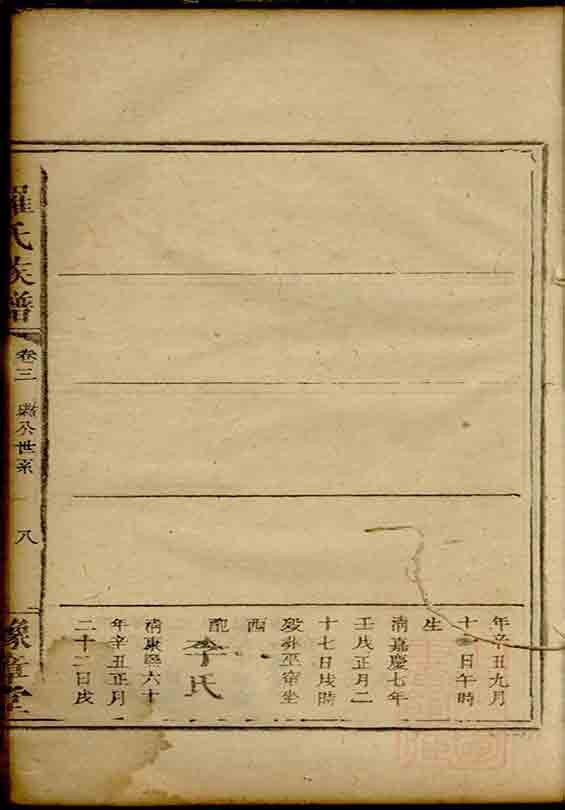 年辛丑九月
十一日午時
生
清嘉慶七年
壬戌正月二
十七日戌時
歿卦巫宿坐
酉
配
李氏
清康熙六十
年辛丑正月
二十二日戌
羅氏族譜
卷三
公世系
八
豫章堂